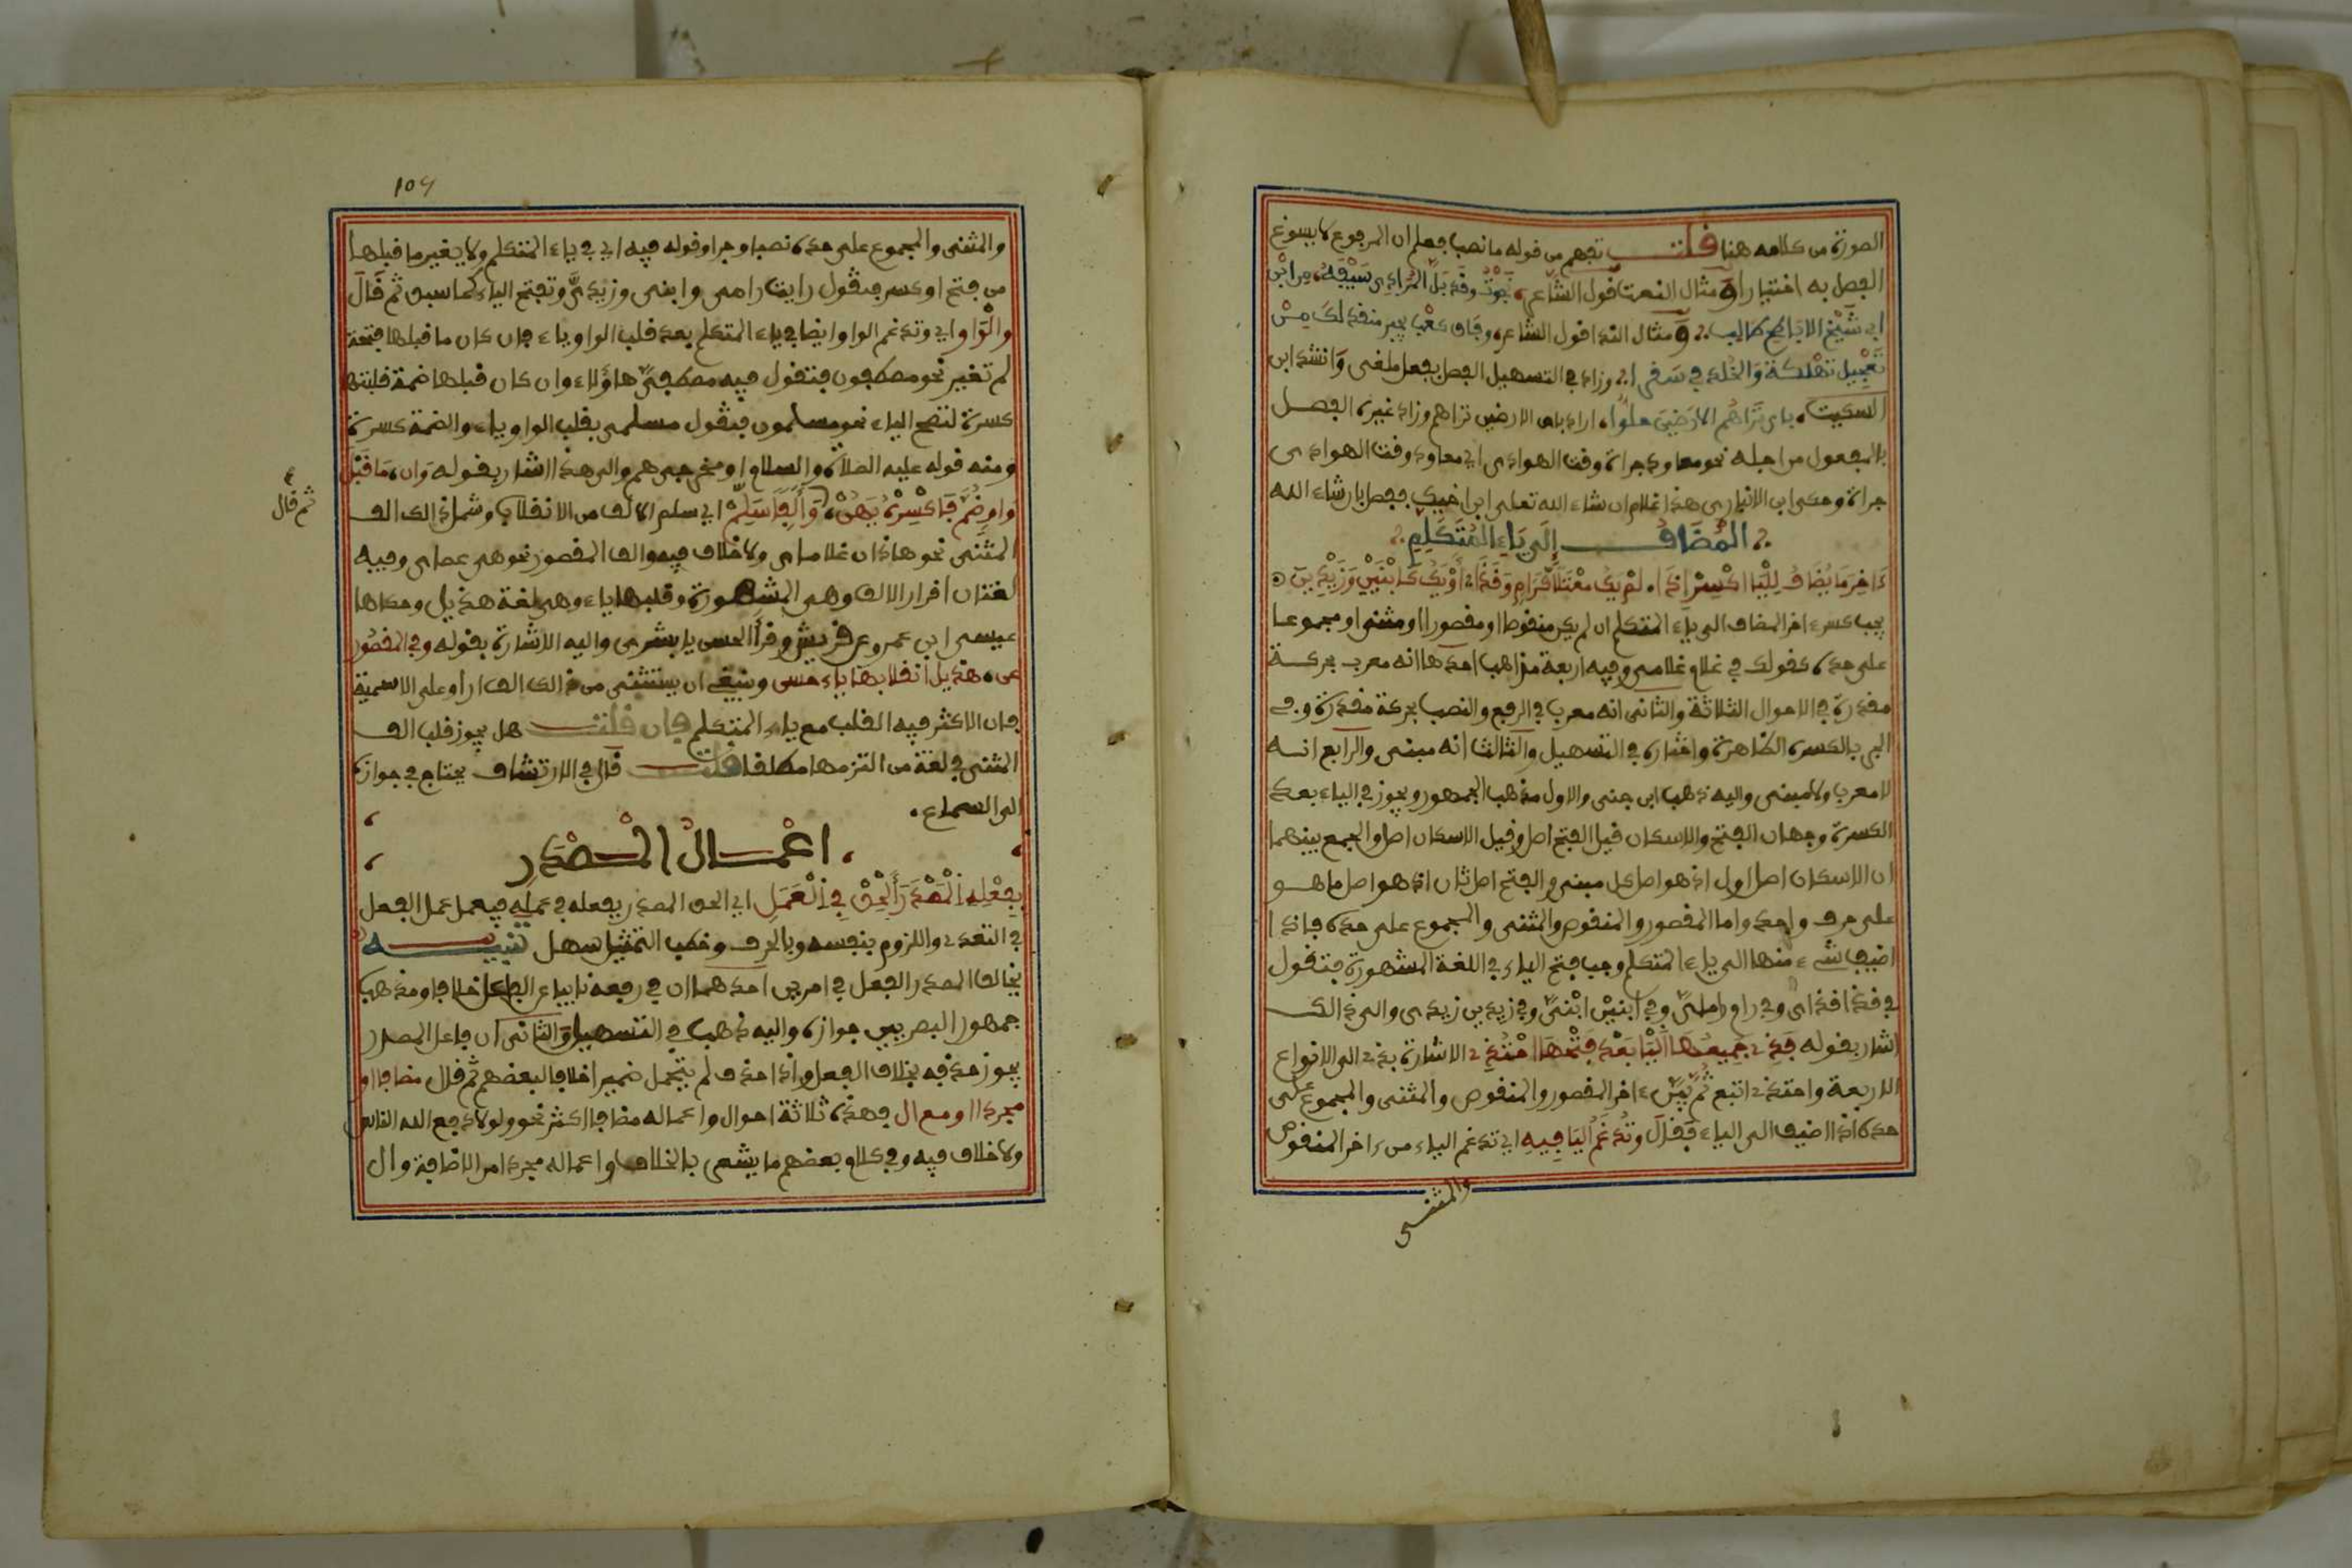 الصورة من كلامه هنا قلت تفهم من قوله ما نصب فعلم ان المرفوع لا يسوغ
الفصل به اختيارا ومثال النعت قول الشاعر نجوت وقد بل المرادي سيفه من ابن
ابي شيخ الاباطح طالب ومثال الندا قول الشاعر وفاق كعب بجير منقذ لك من
تعجيل تهلكة والخلد في سقر وزاد في التسهيل الفصل بفعل ملغى وانشد ابن
السكيت باي تراهم الارضين حلوا اراد باي الارضين تراهم وزاد غيره الفصل
بالمفعول من اجله نحو معاود جراة وقت الهوادى اي معاود وقت الهوادى
جراة وحكى ابن الانبارى هذا غلام ان شاء الله تعلى ابن اخيك ففصل بان شاء الله
المضاف إلى ياء المتكلم
ءاخر ما يضاف لليا اكسر اذا لم يك معتلا كرام وقذا او يك كابنين وزيدين
يجب كسر ءاخر المضاف الى ياء المتكلم ان لم يكن منقوصا او مقصورا او مثنى او مجموعا
على حده كقولك في غلام غلامى وفيه اربعة مذاهب احدها انه معرب بحركة
مقدرة في الاحوال الثلاثة والثانى انه معرب في الرفع والنصب بحركة مقدرة وفي
الجر بالكسرة الظاهرة واختاره في التسهيل والثالث انه مبنى والرابع انه
لا معرب ولا مبنى واليه ذهب ابن جنى والاول مذهب الجمهور ويجوز في الياء بعد
الكسرة وجهان الفتح والاسكان قيل الفتح اصل وقيل الاسكان اصل والجمع بينهما
ان الاسكان اصل اول اذ هو اصل كل مبنى والفتح اصل ثان اذ هو اصل ما هو
على حرف واحد واما المقصور والمنقوص والمثنى والمجموع على حده فاذا
اضيف شيء منها الى ياء المتكلم وجب فتح الياء في اللغة المشهورة فتقول
في قذا قذاى وفي رام رامىّ وفي ابنين ابنىّ وفي زيدين زيدى والى ذالك
اشار بقوله فذي جميعها اليا بعد فتحها احتذي الاشارة بذي الى الانواع
الاربعة واحتذي اتبع ثم بين ءاخر المقصور والمنقوص والمثنى والمجموع على
حده اذا اضيف الى الياء فقال وتدغم اليا فيه اي تدغم الياء من ءاخر المنقوص
والمثنى
والمثنى والمجموع على حده نصبا وجرا وقوله فيه اي في ياء المتكلم ولا يغير ما قبلها
من فتح او كسر فتقول رايت رامى وابنى وزيدىّ وتفتح الياء كما سبق ثم قال
والواو اي وتدغم الواو ايضا في ياء المتكلم بعد قلب الواو ياء فان كان ما قبلها فتحة
لم تغير نحو مصطفون فتقول فيه مصطفىّ هاؤلاء وان كان قبلها ضمة قلبتها
كسرة لتصح الياء نحو مسلمون فتقول مسلمى بقلب الواو ياء والضمة كسرة
ومنه قوله عليه الصلاة والسلام او مخرجى هم والى هذا اشار بقوله وان ما قبل
واو ضم فاكسره يهن وألفا سلم اي سلم الالف من الانقلاب وشمل ذالك الف
ثم قال
المثنى نحو هاذان غلاماى ولا خلاف فيه والف المقصور نحو هى عصاى وفيه
لغتان اقرار الالف وهى المشهورة وقلبها ياء وهى لغة هذيل وحكاها
عيسى ابن عمرو عن قريش وقرأ الحسن يا بشرى واليه الاشارة بقوله وفي المقصور
عن هذيل انقلابها ياء حسن وينبغي ان يستثنى من ذالك الف لدا وعلى الاسمية
فان الاكثر فيه القلب مع ياء المتكلم فان قلت هل يجوز قلب الف
المثنى في لغة من التزمها مطلقا قلت قال في الارتشاف يحتاج في جوازه
الى السماع
اعمال المصدر
بفعله المصدر ألحق في العمل اي الحق المصدر بفعله في عمله فيعمل عمل الفعل
في التعدي واللزوم بنفسه وبالحرف وخطب التمثيل سهل تنبيه
يخالف المصدر الفعل في امرين احدهما ان في رفعه نايب الفاعل خلافا ومذهب
جمهور البصريين جوازه واليه ذهب في التسهيل والثانى ان فاعل المصدر
يجوز حذفه بخلاف الفعل واذا حذف لم يتحمل ضميرا خلافا لبعضهم ثم قال مضافا او
مجردا او مع ال فهذه ثلاثة احوال واعماله مضافا اكثر نحو ولولا دفع الله الناس
ولا خلاف فيه وفي كلام بعضهم ما يشعر بالخلاف واعماله مجردا من الاضافة وال